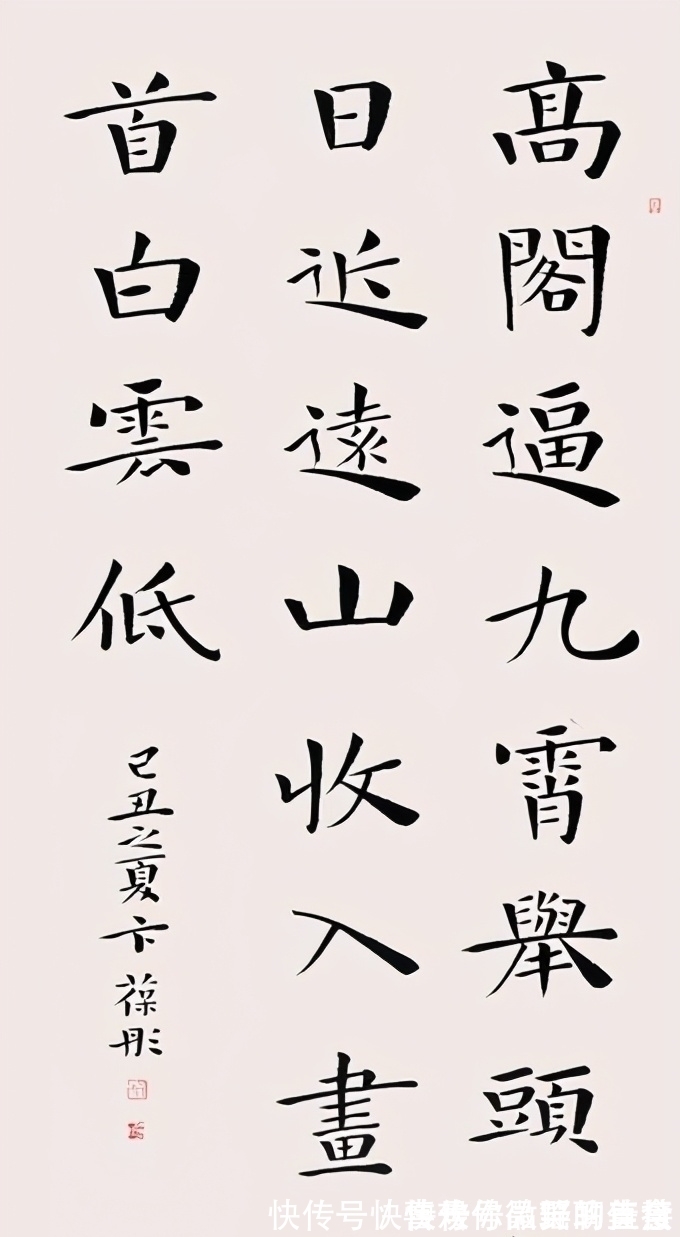 高閣逼九霄舉頭
日近遠山收入畫
首白雲低
己丑之夏卞葆彤
快传号